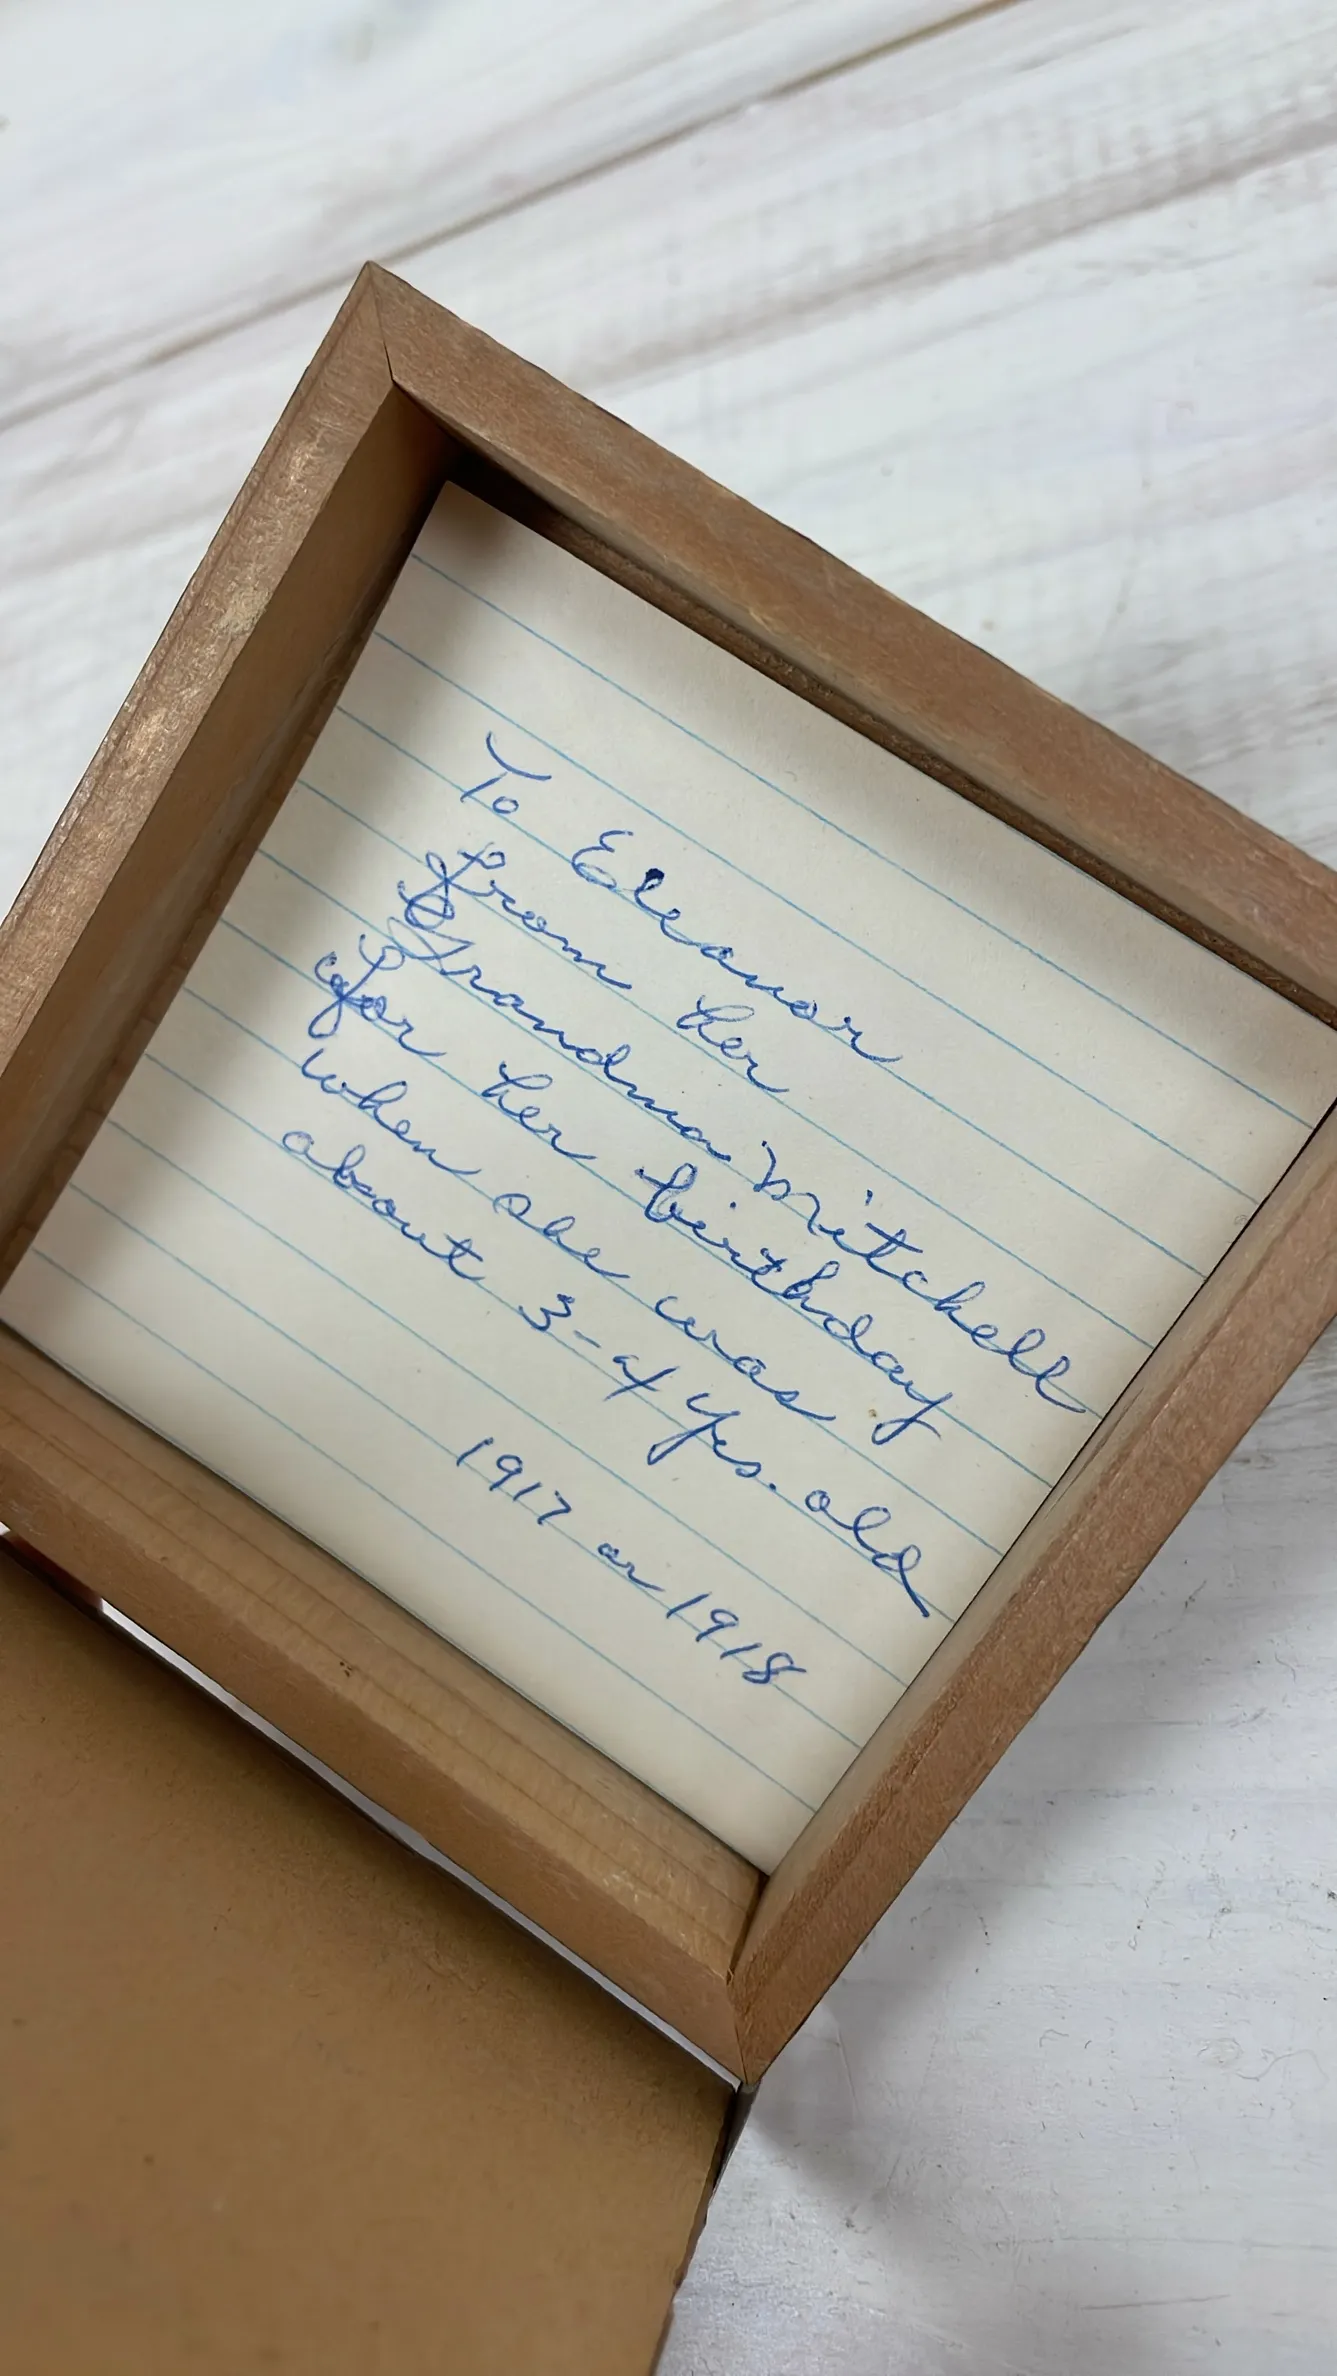 To Eleanor
from her
Grandma Mitchell
for her birthday
when she was
about 3-4 yrs. old
1917 or 1918